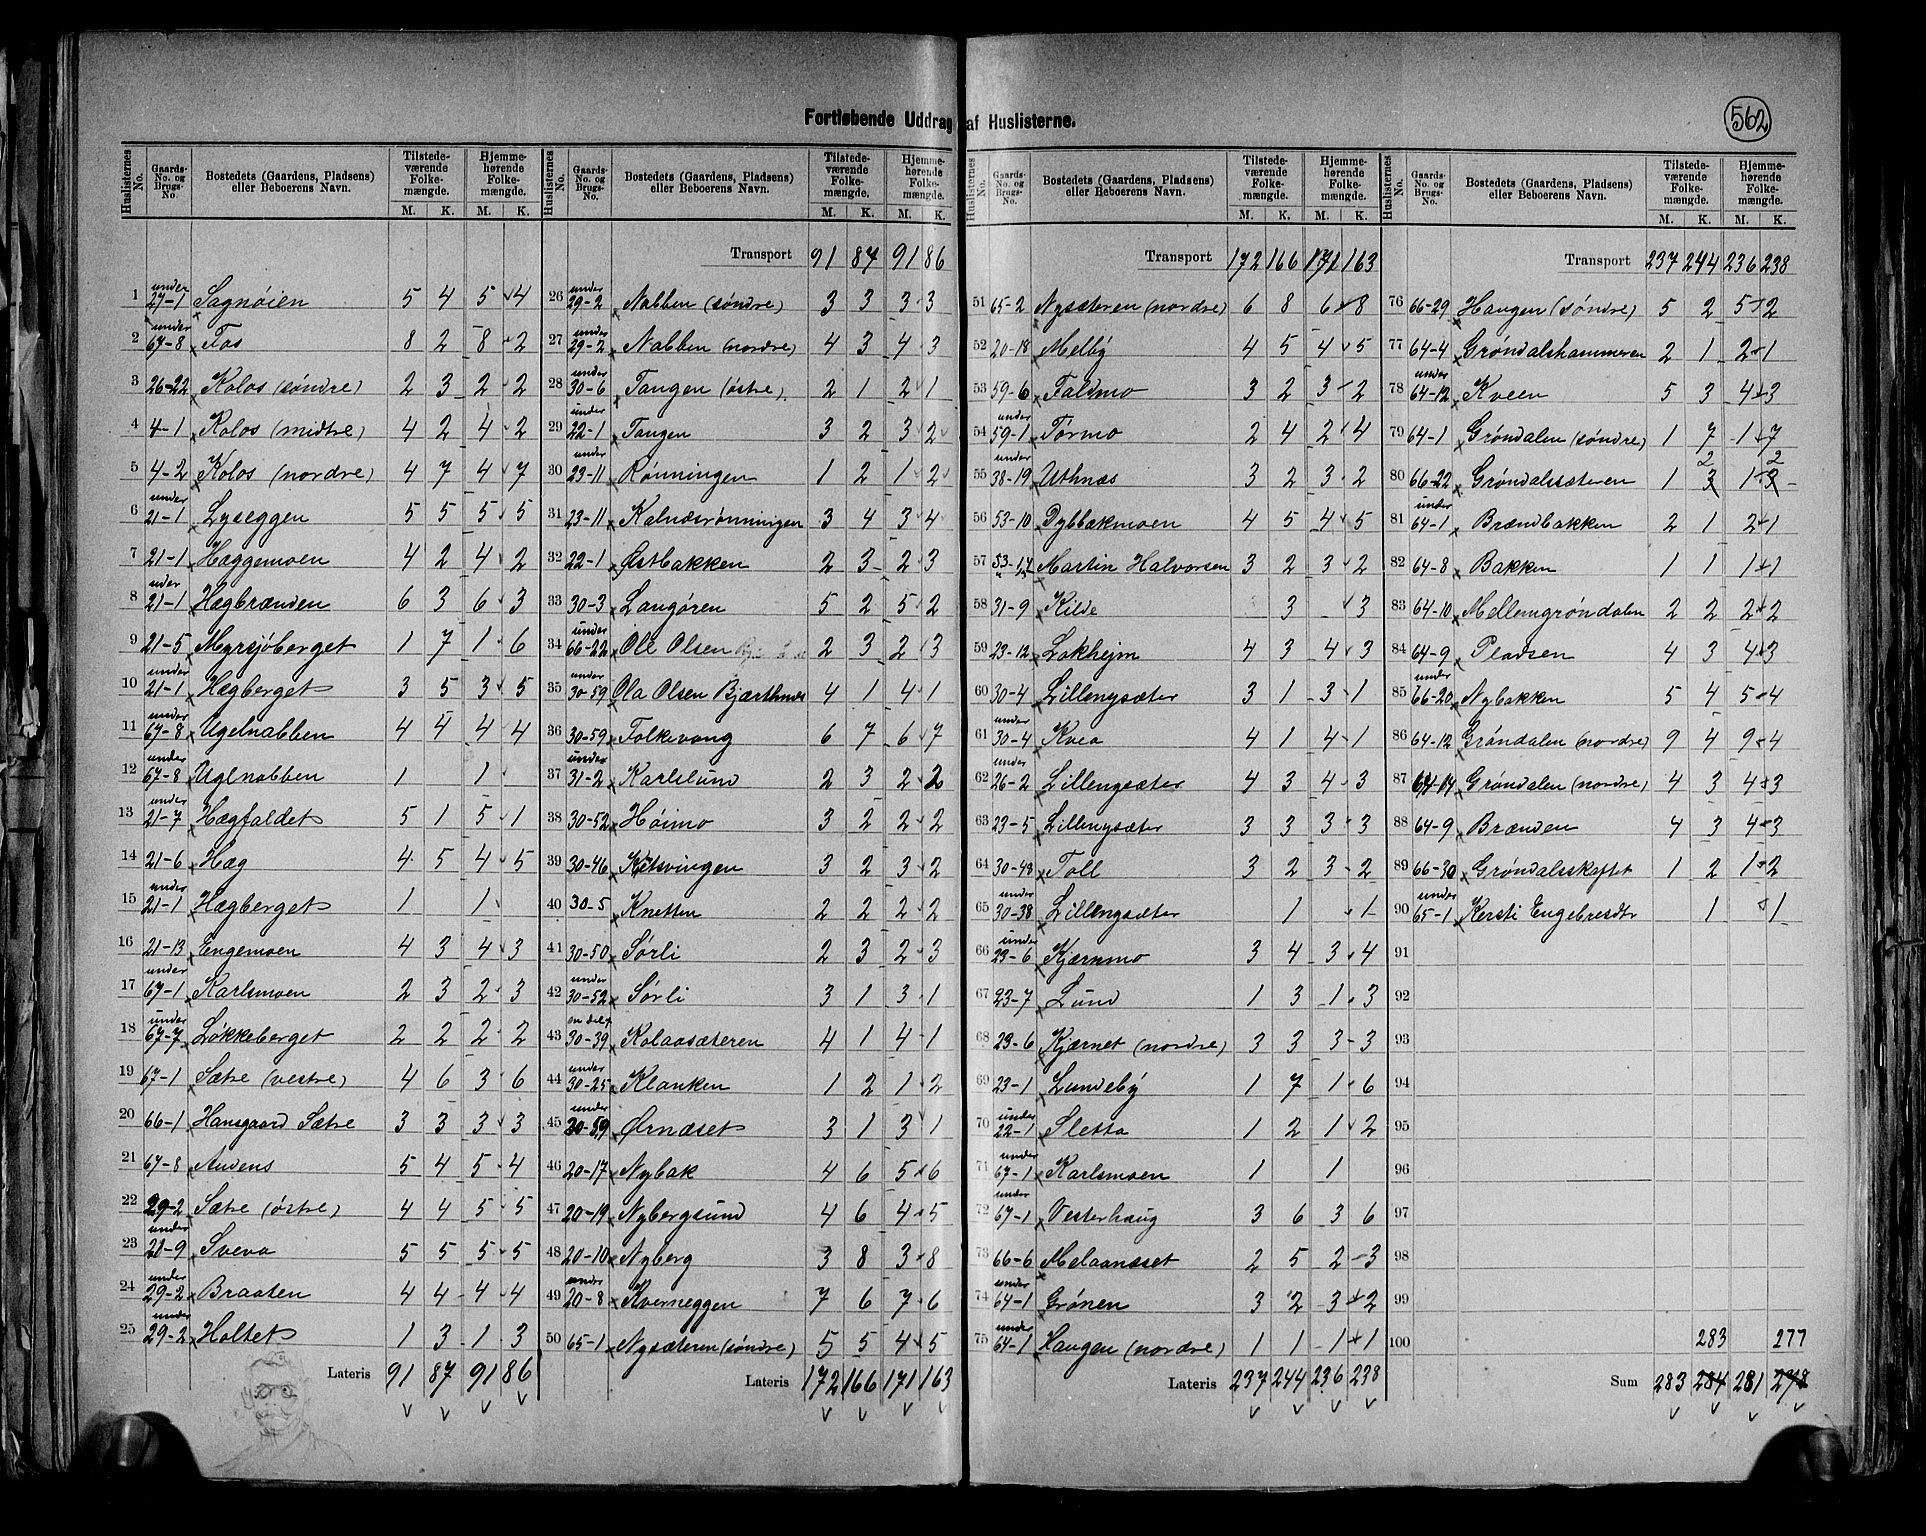 Fortløbende Uddrag af Huslisterne.
562
Huslisternes No. Gaards-No. og Brugs-No. Bostedets (Gaardens, Pladsens) eller Beboerens Navn. Tilstedeværende Folkemængde. M. K. Hjemmehørende Folkemængde. M. K.
1 under 27-1 Sagnøien 5 4 5 4
2 under 67-8 Fos 8 2 8 2
3 26-22 Kolos (søndre) 2 3 2 2
4 4-1 Kolos (midtre) 4 2 4 2
5 4-2 Kolos (nordre) 4 7 4 7
6 under 21-1 Lyseggen 5 5 5 5
7 21-1 Hæggemoen 4 2 4 2
8 under 21-1 Hægbrænden 6 3 6 3
9 21-5 Myrsjøberget 1 7 1 6
10 under 21-1 Hægberget 3 5 3 5
11 under 67-8 Ugelnabben 4 4 4 4
12 under 67-8 Uglnabben 1 1
13 under 21-7 Hægfaldet 5 1 5 1
14 21-6 Hæg 4 5 4 5
15 under 21-1 Hægberget 1 1
16 21-13 Engemoen 4 3 4 3
17 under 67-1 Karlsmoen 2 3 2 3
18 under 67-7 Løkkeberget 2 2 2 2
19 67-1 Sætre (vestre) 4 6 3 6
20 66-1 Hansgaard Sætre 3 3 3 3
21 67-8 Audens 5 4 5 4
22 29-2 Sætre (østre) 4 4 5 5
23 under 21-9 Svea 5 5 5 5
24 under 29-2 Braaten 4 4 4 4
25 under 29-2 Holtet 1 3 1 3
Lateris 91 87 91 86
Huslisternes No. Gaards-No. og Brugs-No. Bostedets (Gaardens, Pladsens) eller Beboerens Navn. Tilstedeværende Folkemængde. M. K. Hjemmehørende Folkemængde. M. K.
Transport 91 87 91 86
26 under 29-2 Nabben (søndre) 3 3 3 3
27 under 29-2 Nabben (nordre) 4 3 4 3
28 under 30-6 Tangen (østre) 2 1 2 1
29 under 22-1 Tangen 3 2 3 2
30 under 23-11 Rønningen 1 2 1 2
31 23-11 Kalnæsrønningen 3 4 3 4
32 22-1 Østbakken 2 3 2 3
33 30-3 Langøren 5 2 5 2
34 under 66-22 Ole Olsen 2 3 2 3
35 under 30-59 Ola Olsen Bjærthnæs 4 1 4 1
36 30-59 Folkevang 6 7 6 7
37 under 31-2 Karlslund 2 3 2 2
38 30-52 Høimo 3 2 2 2
39 30-46 Kitsvingen 3 2 3 2
40 30-5 Knetten 2 2 2 2
41 30-50 Sørli 2 3 2 3
42 under 30-52 Sørli 3 1 3 1
43 en del af 30-39 Kolaasæteren 4 1 4 1
44 under 30-25 Klanken 1 2 1 2
45 under 30-59 Ørnæset 3 1 3 1
46 20-17 Nybak 4 6 5 6
47 20-19 Nybergsund 4 6 4 5
48 20-10 Nyberg 3 8 3 8
49 under 20-8 Kverneggen 7 6 7 6
50 65-1 Nysæteren (søndre) 5 5 4 5
Lateris 172 166 171 163
Huslisternes No. Gaards-No. og Brugs-No. Bostedets (Gaardens, Pladsens) eller Beboerens Navn. Tilstedeværende Folkemængde. M. K. Hjemmehørende Folkemængde. M. K.
Transport 172 166 171 163
51 65-2 Nysæteren (nordre) 6 8 6 8
52 20-18 Melby 4 5 4 5
53 59-6 Faldmo 3 2 3 2
54 under 59-1 Tørmo 2 4 2 4
55 under 38-19 Uthnæs 3 2 3 2
56 53-10 Dybbækmoen 4 5 4 5
57 53-14 Martin Halvorsen 3 2 3 2
58 31-9 Kilde 3 3
59 23-12 Løkhejm 4 3 4 3
60 30-4 Lillengsæter 3 1 3 1
61 under 30-4 Kvea 4 1 4 1
62 under 26-2 Lillengsæter 4 3 4 3
63 23-5 Lillengsæter 3 3 3 3
64 30-48 Toll 3 2 3 2
65 under 30-38 Lillengsæter 1 1
66 under 23-6 Kjærnmo 3 4 3 4
67 23-7 Lund 1 3 1 3
68 23-6 Kjærnet (nordre) 3 3 3 3
69 23-1 Lundeby 1 7 1 6
70 under 22-1 Sletta 1 2 1 2
71 under 67-1 Karlsmoen 1 1
72 under 67-1 Vesterhaug 3 6 3 6
73 66-6 Melaanæset 2 5 2 3
74 under 64-1 Grønen 3 2 3 2
75 under 64-1 Haugen (nordre) 1 1 1 1
Lateris 237 244 236 238
Huslisternes No. Gaards-No. og Brugs-No. Bostedets (Gaardens, Pladsens) eller Beboerens Navn. Tilstedeværende Folkemængde. M. K. Hjemmehørende Folkemængde. M. K.
Transport 237 244 236 238
76 66-29 Haugen (søndre) 5 2 5 2
77 64-4 Grøndalshammeren 2 1 2 1
78 under 64-12 Kveen 5 3 4 3
79 64-1 Grøndalen (søndre) 1 7 1 7
80 66-22 Grøndalssæteren 1 3 2 1 3 2
81 under 64-1 Brændbakken 2 1 2 1
82 64-8 Bakken 1 1 1 1
83 64-10 Mellemgrøndalen 2 2 2 2
84 64-9 Pladsen 4 3 4 3
85 under 66-20 Nybakken 5 4 5 4
86 64-12 Grøndalen (nordre) 9 4 9 4
87 64-14 Grøndalen (nordre) 4 3 4 3
88 64-9 Brænden 4 3 4 3
89 66-30 Grøndalsskaftet 1 2 1 2
90 under 65-1 Kersti Engebresdtr 1 1
91
92
93
94
95
96
97
98
99
100 283 277
Sum 283 284 281 278